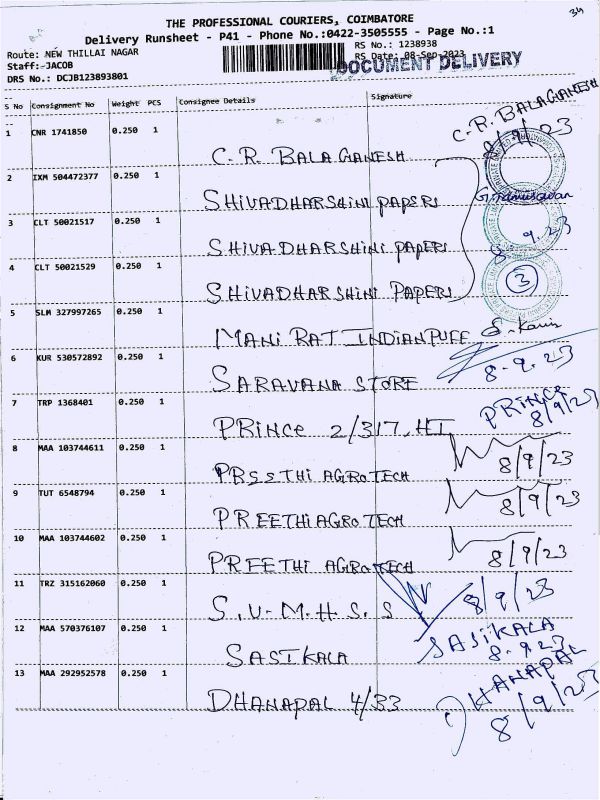 34
THE PROFESSIONAL COURIERS, COIMBATORE
Delivery Runsheet - P41 - Phone No.:0422-3505555 - Page No.:1
Route: NEW THILLAI NAGAR
RS No.: 1238938
Staff: JACOB
RS Date: 08-Sep-2023
DOCUMENT DELIVERY
DRS No.: DCJB123893801
S No Consignment No Weight PCS Consignee Details Signature
1 CNR 1741850 0.250 1 C.R. BALAGANESH C.R. BALAGANESH 8/9/23
2 IXM 504472377 0.250 1 SHIVADHARSHINI PAPERS
3 CLT 50021517 0.250 1 SHIVADHARSHINI PAPERS 8 9.23
4 CLT 50021529 0.250 1 SHIVADHARSHINI PAPERS 3
5 SLM 327997265 0.250 1 MANI RAT INDIANPUFF
6 KUR 530572892 0.250 1 SARAVANA STORE 8-9.23
7 TRP 1368401 0.250 1 PRINCE 2/317, HI PRINCE 8/9/23
8 MAA 103744611 0.250 1 PREETHI AGROTECH 8/9/23
9 TUT 6548794 0.250 1 PREETHI AGROTECH 8/9/23
10 MAA 103744602 0.250 1 PREETHI AGROTECH 8/9/23
11 TRZ 315162060 0.250 1 S.V.M.H.S.S 8/9/23
12 MAA 570376107 0.250 1 SASIKALA SASIKALA 8.9.23
13 MAA 292952578 0.250 1 DHANAPAL 4/33 DHANAPAL 8/9/23